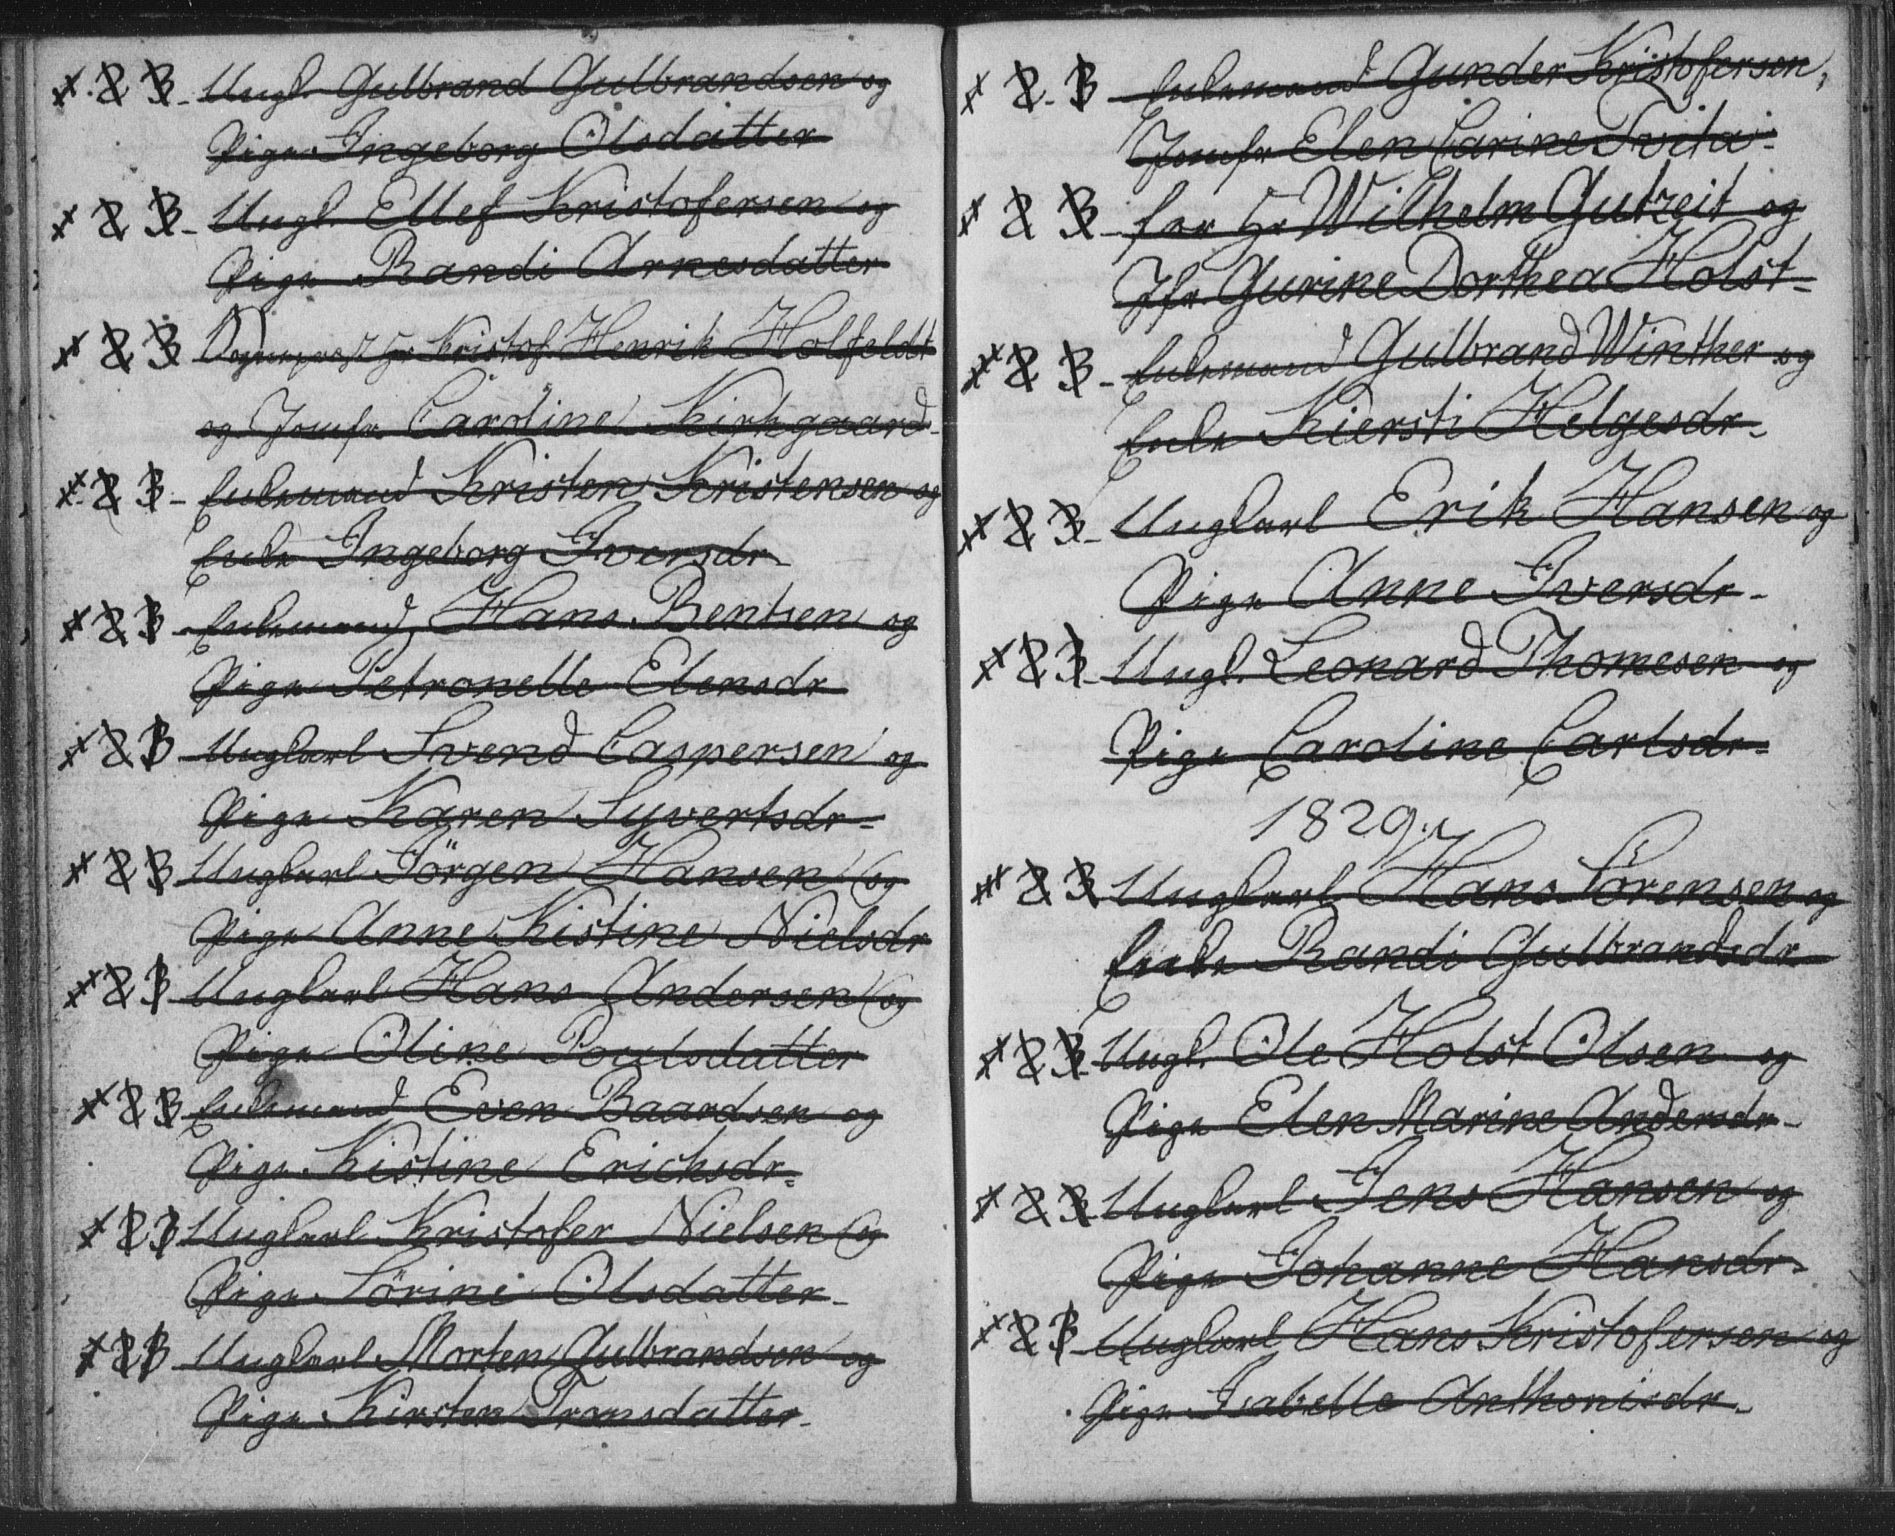 Ungk. Gulbrand Gulbrandsen og
Pige Ingeborg Olsdatter
Ungk. Ellef Kristofersen og
Pige Randi Arnesdatter
Hr Kristof. Henrik Holfeldt
og Jomfr. Caroline Kirkgaard
Enkemand Kristen Kristensen og
Enke Ingeborg Iversdr
Enkemand Hans Bentsen og
Pige Petronelle Elensdr
Ungkarl Svend Caspersen og
Pige Karen Syvertsdr
Ungkarl Jörgen Hansen og
Pige Anne Kistine Nielsdr
Ungkarl Hans Andersen og
Pige Oline Poulsdatter
Enkemand Even Baardsen og
Pige Kistine Ericksdr
Ungkarl Kristofer Nielsen og
Pige Sörine Olsdatter
Ungkarl Morten Gulbrandsen og
Pige Kirsten Transdatter
Enkemand Gunder Kristofersen,
Jomfr Elen Carine
Hr Wilhelm Gutzeit og
Jfr. Gurine Dorthea Holst
Enkemand Gulbrand Winther og
Enke Kiersti Helgesdr
Ungkarl Erik Hansen og
Pige Anne Iversdr
Ungk. Leonard Thomesen og
Pige Caroline Carlsdr
1829.
Ungkarl Hans Sörensen og
Enke Randi Gulbrandsdr
Ungk. Ole Holst Olsen og
Pige Elen Marine Andersdr
Ungkarl Jens Hansen og
Pige Johanne Hansdr
Ungkarl Hans Kristofersen og
Pige Isabelle Anthonisdr